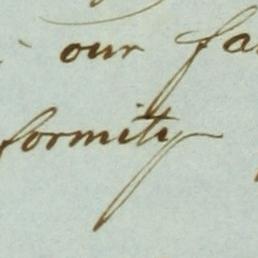 our fa
formity